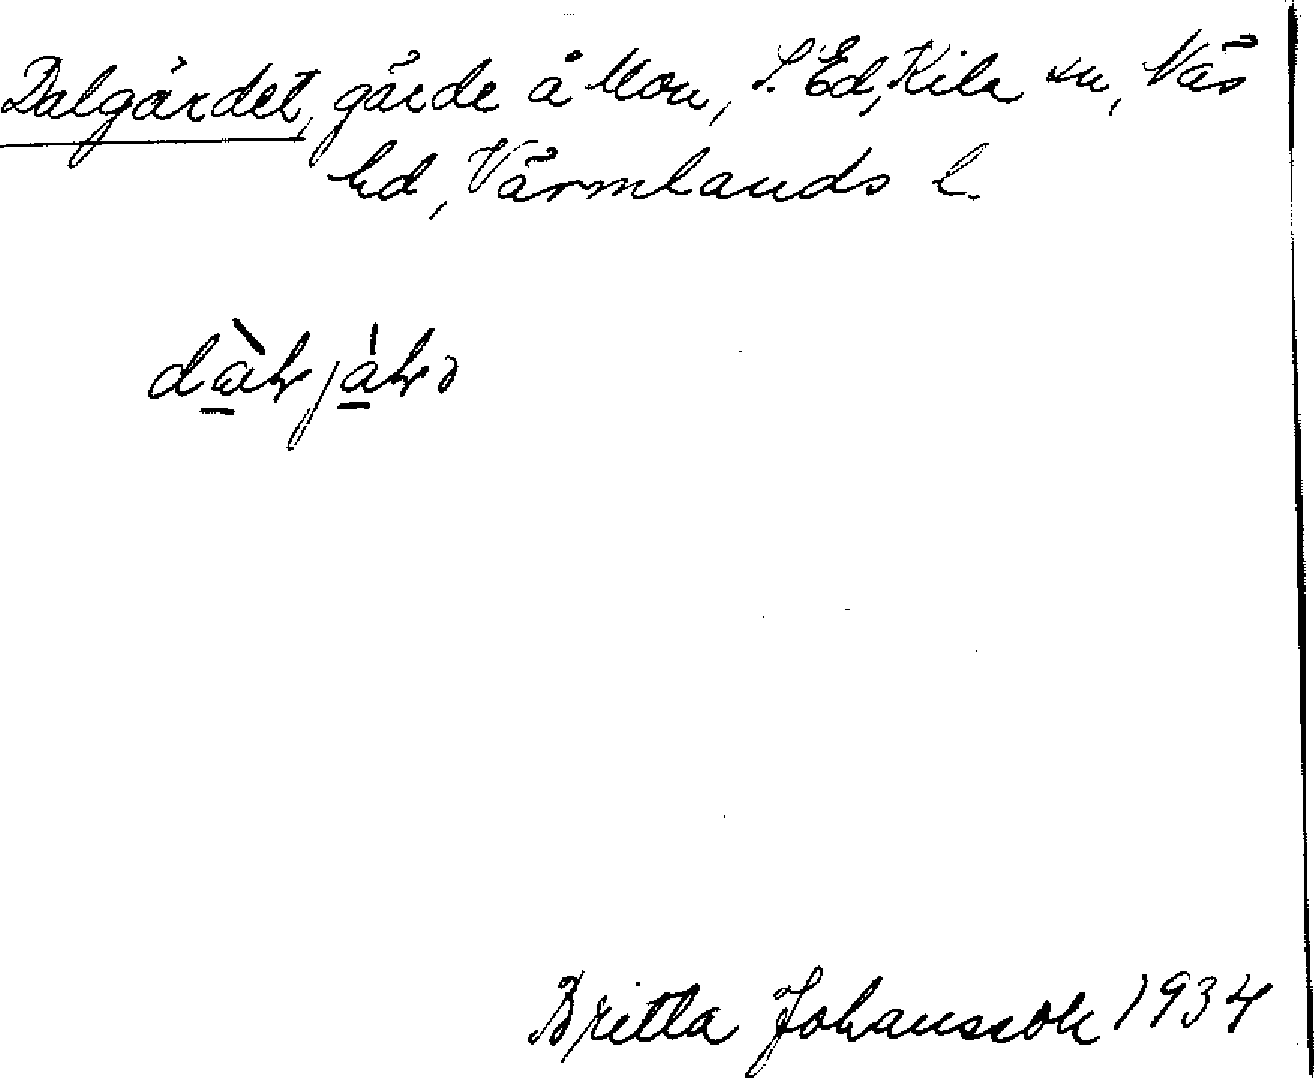 Dalgärdet, gärde å Mon, S. Ed, Kila sn, Näs
hd, Värmlands l.
Britta Johansson 1934